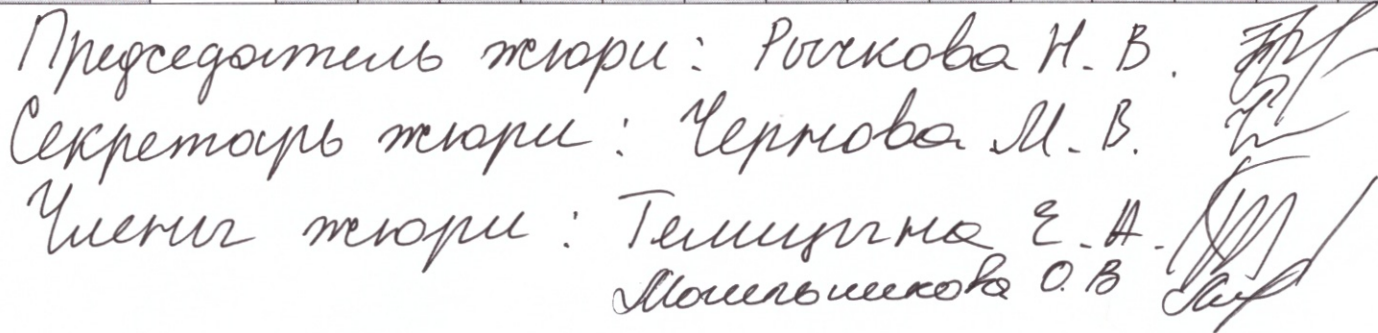 Председатель жюри: Рычкова Н. В.
Секретарь жюри: Чернова М. В.
Члены жюри: Темицына Е. А.
О. В